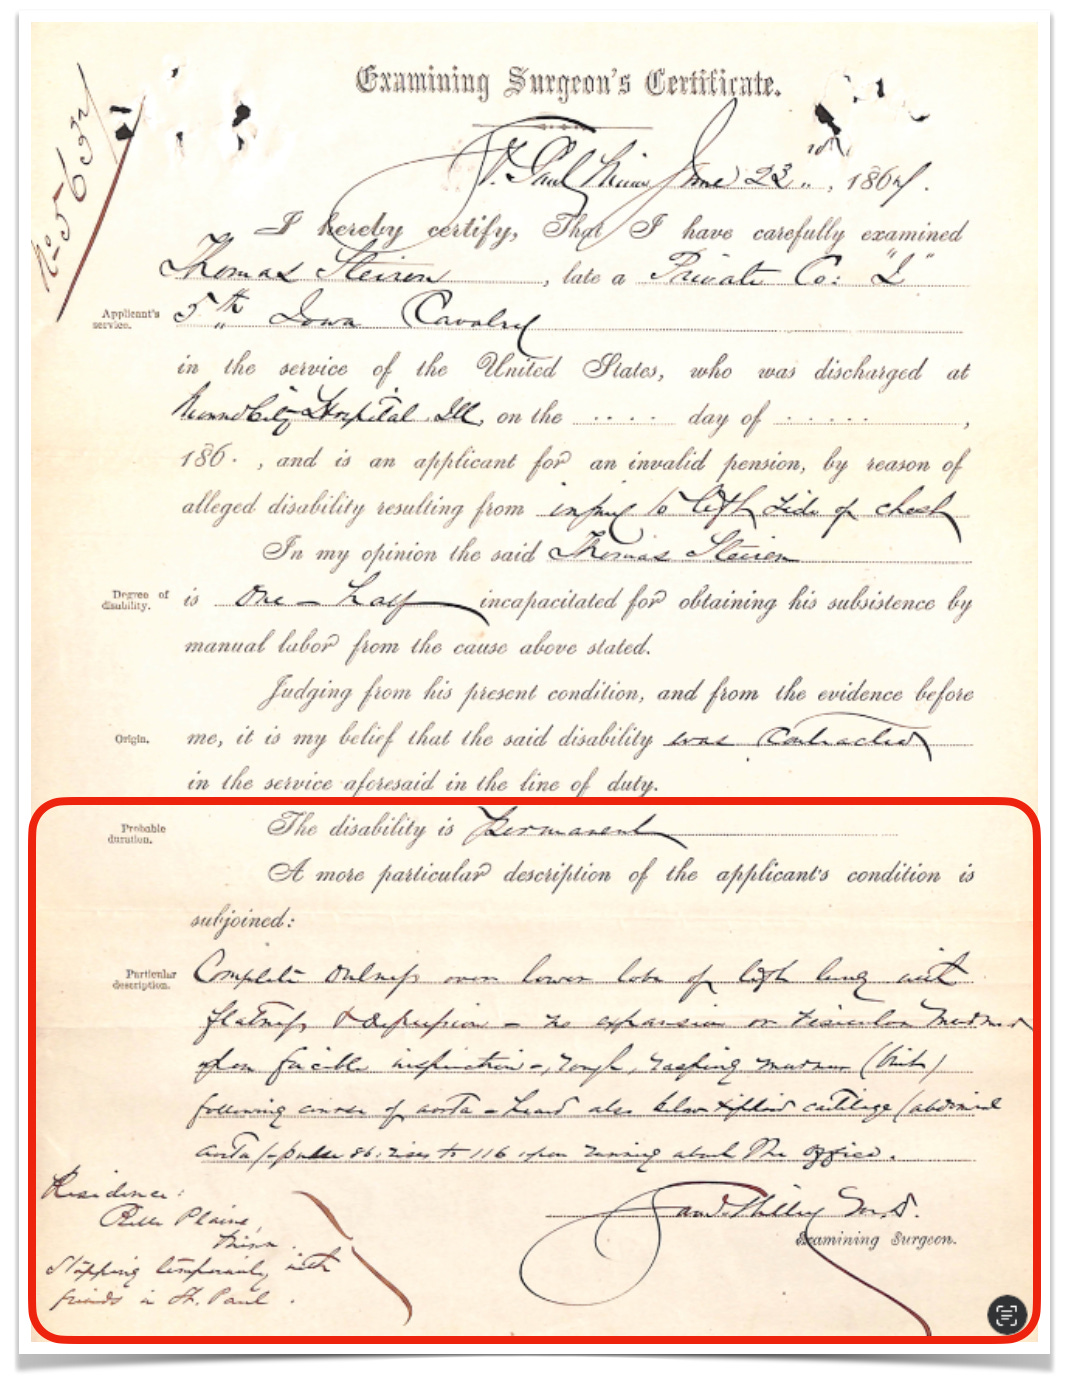 Examining Surgeon's Certificate.
No 563
St. Paul Minn June 23rd, 1864.
I hereby certify, That I have carefully examined
Thomas Steiren, late a Private Co: "L"
Applicant's service.
5th Iowa Cavalry
in the service of the United States, who was discharged at
Mound City Hospital Ill, on the .... day of .....,
186 , and is an applicant for an invalid pension, by reason of
alleged disability resulting from injury to left side of chest
In my opinion the said Thomas Steiren
Degree of disability.
is One-half incapacitated for obtaining his subsistence by
manual labor from the cause above stated.
Judging from his present condition, and from the evidence before
Origin.
me, it is my belief that the said disability was contracted
in the service aforesaid in the line of duty.
Probable duration.
The disability is permanent
A more particular description of the applicant's condition is
subjoined:
Particular description.
Complete dulness over lower lobe of left lung with
flatness & depression - no expansion or vesicular murmur
upon forcible inspiration -, rough, rasping murmur (bruit)
following course of aorta - heard also below xiphoid cartilage (abdominal
aorta) - pulse 86: rises to 116 upon running about the office.
Residence:
Belle Plaine,
Minn.
Stopping temporarily with
friends in St. Paul.
M.D.
Examining Surgeon.